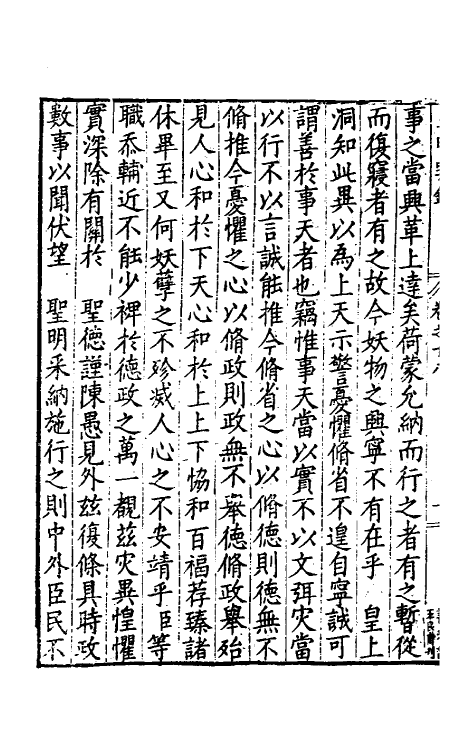 事之當興革上達矣荷蒙允納而行之者有之暫從
而復寢者有之故今妖物之興寧不有在乎　皇上
洞知此異以為上天示警憂懼脩省不遑自寧誠可
謂善於事天者也竊惟事天當以實不以文弭灾當
以行不以言誠能推今脩省之心以脩德則德無不
脩推今憂懼之心以脩政則政無不舉德脩政舉殆
見人心和於下天心和於上上下恊和百福荐臻諸
休畢至又何妖孽之不殄滅人心之不安靖乎臣等
職忝輔近不能少裨於德政之萬一覩茲灾異惶懼
實深除有關於　聖德謹陳愚見外茲復條具時政
數事以聞伏望　聖明采納施行之則中外臣民不